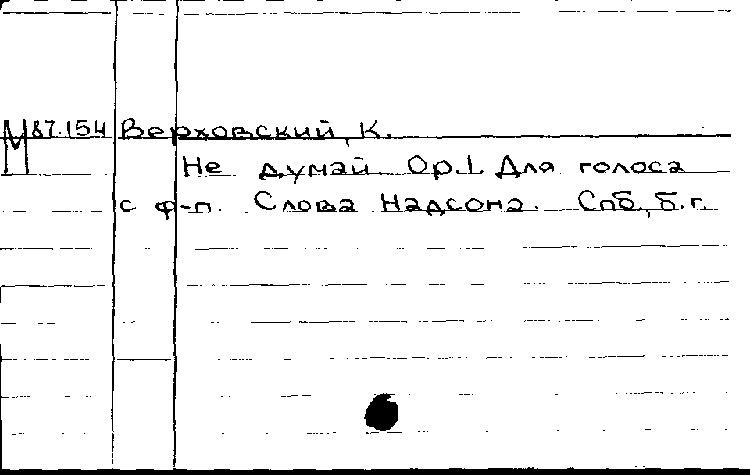 М 87.154 Верховский, К.
Не думай. Op.1. Для голоса
с ф-п. Слова Надсона. Спб., б.г.